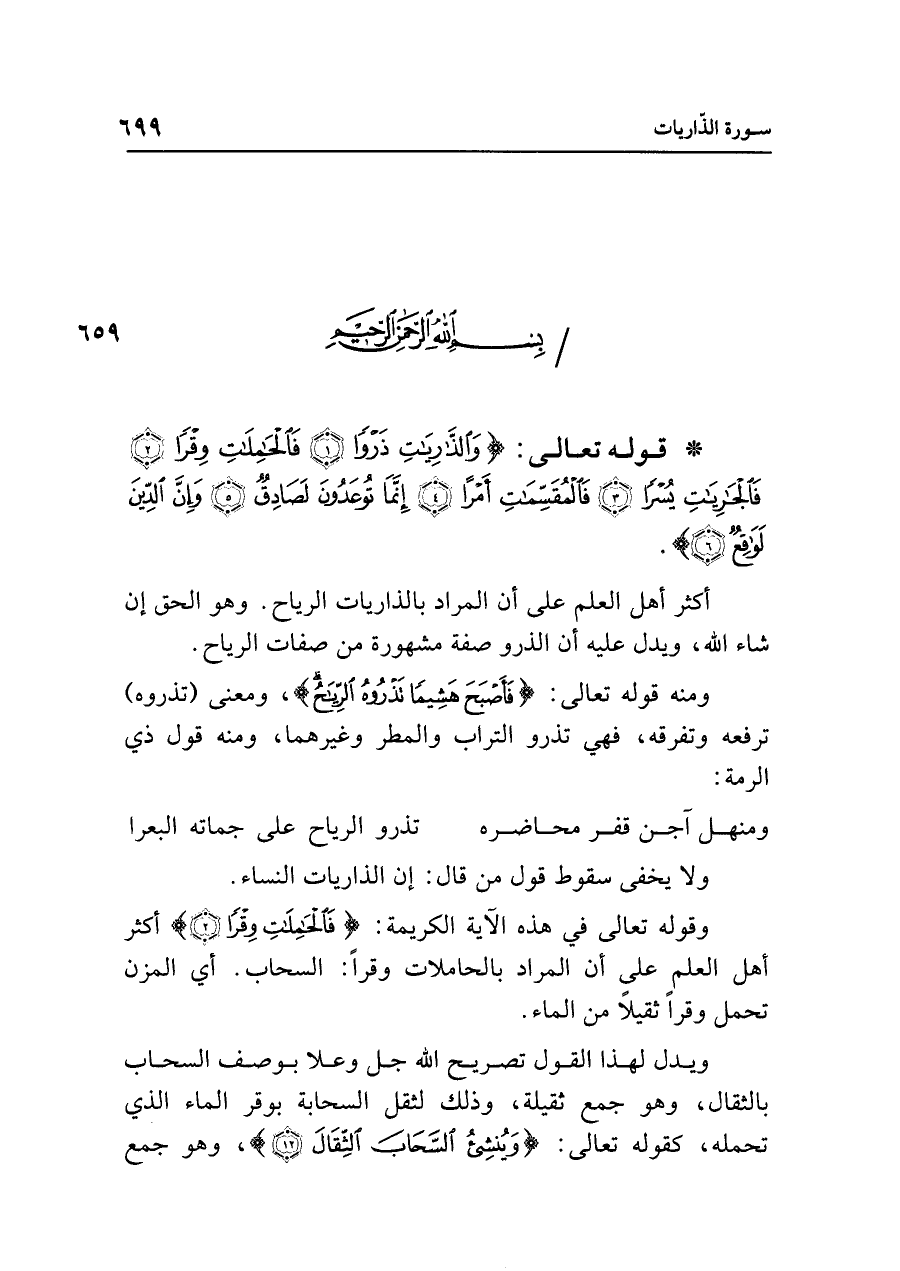 سورة الذّاريات ٦٩٩
/ بِسْمِ اللَّهِ الرَّحْمَٰنِ الرَّحِيمِ ٦٥٩
* قوله تعالى: ﴿وَٱلذَّٰرِيَٰتِ ذَرۡوٗا ١ فَٱلۡحَٰمِلَٰتِ وِقۡرٗا ٢
فَٱلۡجَٰرِيَٰتِ يُسۡرٗا ٣ فَٱلۡمُقَسِّمَٰتِ أَمۡرًا ٤ إِنَّمَا تُوعَدُونَ لَصَادِقٞ ٥ وَإِنَّ ٱلدِّينَ
لَوَٰقِعٞ ٦﴾.
أكثر أهل العلم على أن المراد بالذاريات الرياح. وهو الحق إن
شاء الله، ويدل عليه أن الذرو صفة مشهورة من صفات الرياح.
ومنه قوله تعالى: ﴿فَأَصۡبَحَ هَشِيمٗا تَذۡرُوهُ ٱلرِّيَٰحُۗ﴾، ومعنى (تذروه)
ترفعه وتفرقه، فهي تذرو التراب والمطر وغيرهما، ومنه قول ذي
الرمة:
ومنهل آجن قفر محاضره تذرو الرياح على جماته البعرا
ولا يخفى سقوط قول من قال: إن الذاريات النساء.
وقوله تعالى في هذه الآية الكريمة: ﴿فَٱلۡحَٰمِلَٰتِ وِقۡرٗا ٢﴾ أكثر
أهل العلم على أن المراد بالحاملات وقراً: السحاب. أي المزن
تحمل وقراً ثقيلاً من الماء.
ويدل لهذا القول تصريح الله جل وعلا بوصف السحاب
بالثقال، وهو جمع ثقيلة، وذلك لثقل السحابة بوقر الماء الذي
تحمله، كقوله تعالى: ﴿وَيُنشِئُ ٱلسَّحَابَ ٱلثِّقَالَ ١٢﴾، وهو جمع